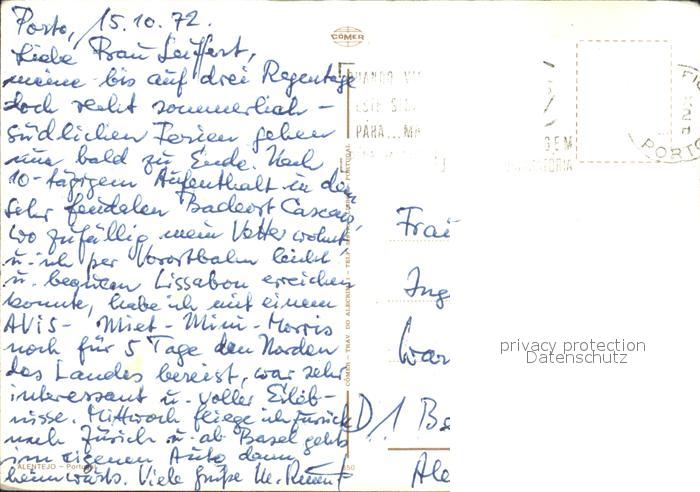 Porto, 15.10.72.
Liebe Frau Leuffert,
meine bis auf drei Regentage
doch recht sommerlich-
südlichen Ferien gehen
nun bald zu Ende. Nach
10-tägigem Aufenthalt in dem
sehr feudalen Badeort Cascais,
wo zufällig mein Vetter wohnt
u. ich per Vorortbahn leicht
u. bequem Lissabon erreichen
konnte, habe ich mit einem
AVIS- Miet-Mini-Morris
noch für 5 Tage den Norden
des Landes bereist, war sehr
interessant u. voller Erleb-
nisse. Mittwoch fliege ich zurück
nach Zürich u. ab Basel gehts
im eigenen Auto dann
heimwärts. Viele Grüße
ALENTEJO - Portugal
COMER
COMER - TRAV. DO ALECRIM
PORTUGAL
QUANDO
ESTE
PÁRA... MA
GEM
PORTO
Frau
Ing
War
D 1 Be
Ale
privacy protection
Datenschutz